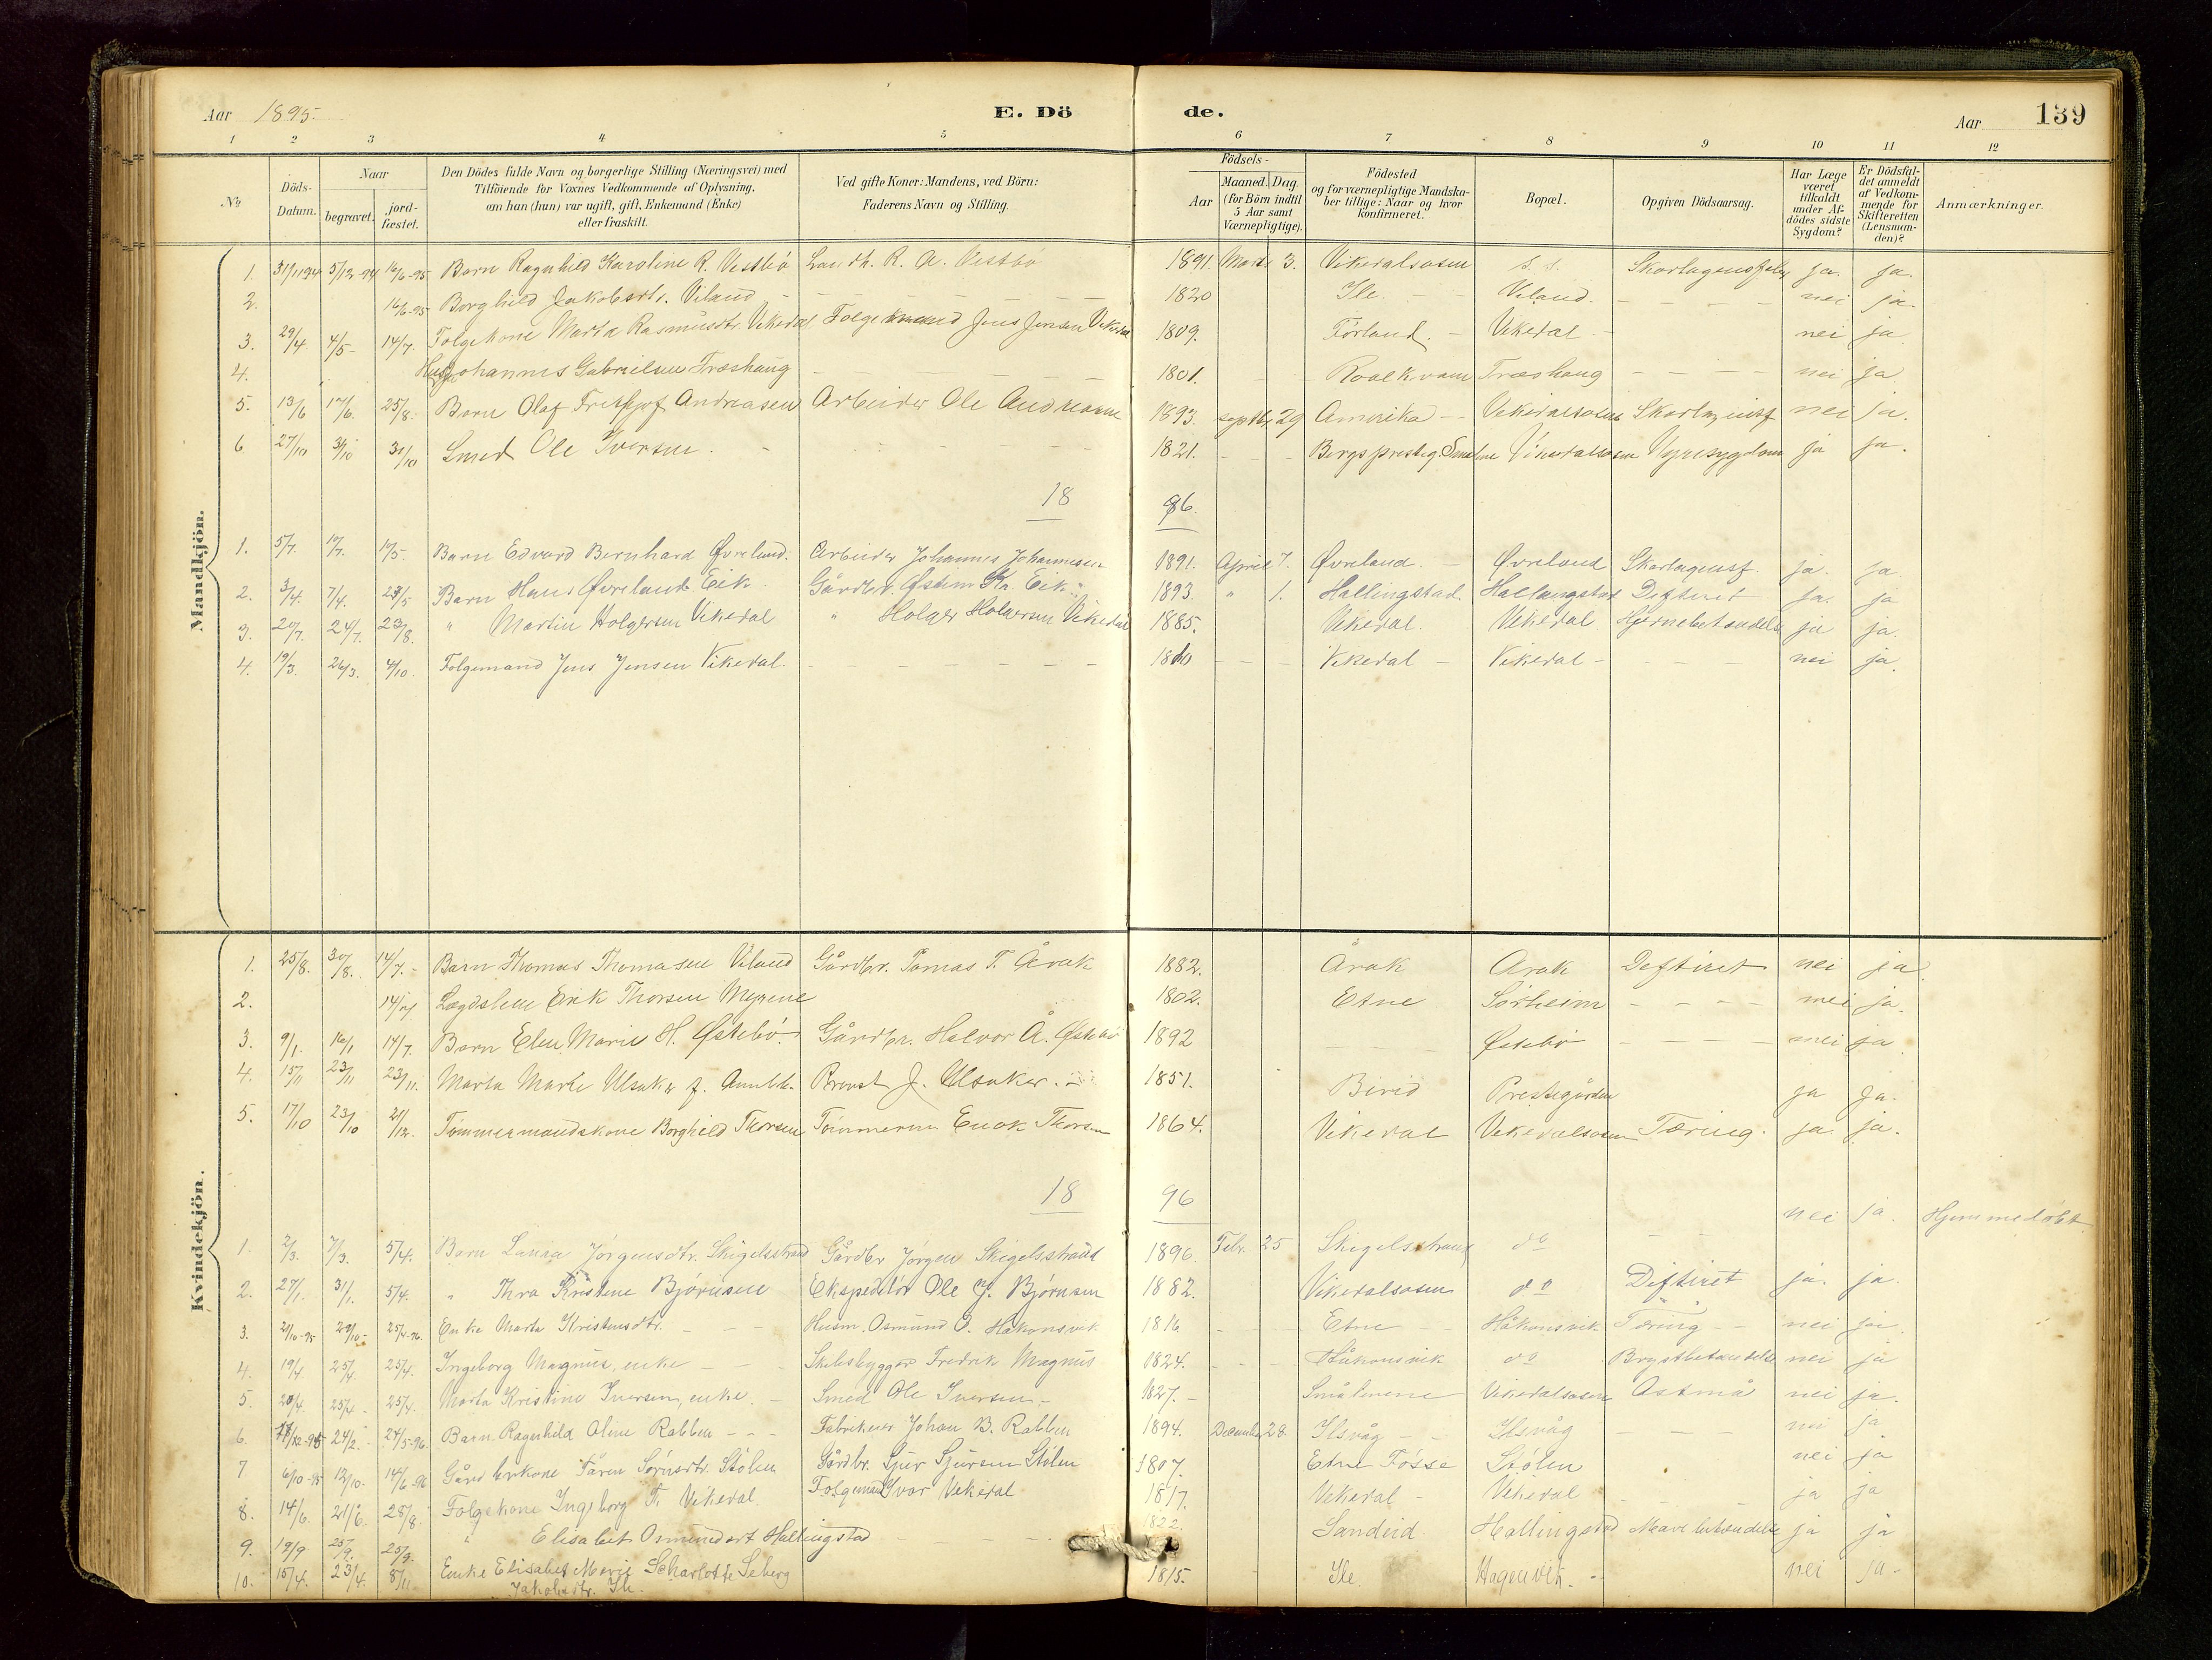 Aar 1895. E. Dö de. Aar 139
1 2 3 4 5 6 7 8 9 10 11 12
No Döds-Datum. Naar begravet. jord-fæstet. Den Dödes fulde Navn og borgerlige Stilling (Næringsvei) med Tilföiende for Voxnes Vedkommende af Oplysning, om han (hun) var ugift, gift, Enkemand (Enke) eller fraskilt. Ved gifte Koner: Mandens, ved Börn: Faderens Navn og Stilling. Födsels- Aar Maaned. Dag. (for Börn indtil 5 Aar samt Værnepligtige). Födested og for værnepligtige Mandskaber tillige: Naar og hvor konfirmeret. Bopæl. Opgiven Dödsaarsag. Har Læge været tilkaldt under Afdödes sidste Sygdom? Er Dödsfaldet anmeldt af Vedkommende for Skifteretten (Lensmanden)? Anmærkninger.
Mandkjön.
1. 5/12-94 16/6-95 Barn Ragnhild Karoline R. Vestbö Landh. R. A. Vestbö 1891. Marts 3. Vikedalsosen Skarlagensfeber ja. ja.
2. 16/6-95 Borghild Jakobsdtr. Viland 1820 Ile. Viland. nei ja.
3. 29/4 4/5 14/7. Folgekone Marta Rasmusdtr Vikedal Folgemand Jens Jensen Vikedal 1809. Førland. Vikedal nei ja.
4. Johannes Gabrielsen Træshaug 1801. Roalkvam Træshaug nei ja
5. 13/6 17/6. 25/8. Barn Olaf Fritjof Andreasen Arbeider Ole Andreasen 1893. Septbr 29 Amerika Vikedalsosen Skarlagensf nei ja.
6 27/10 31/10 31/10 Smed Ole Iversen. 1821. Bergs prestg. Smalene Vikedalsosen Nyresygdom ja ja.
18 96.
1. 5/7. 10/7. Barn Edvard Bernhard Øvreland. Arbeider Johannes Johannesen 1891. April 7. Øvreland. Øvreland Skarlagensf. ja. ja.
2. 3/4. 7/4. 29/5 Barn Hans Øvreland Eik Gårdbr. Østen Kr. Eik 1893. " 1. Hallingstad Hallingstad Difteret ja. ja
3. 20/7. 24/7. 23/8. " Martin Holgersen Vikedal " Holger Holgersen Vikedal 1885. Vikedal. Vikedal Hjernebetændelse ja ja.
4. 19/3. 26/3. 4/10. Folgemand Jens Jensen Vikedal. 1810 Vikedal Vikedal nei ja.
Kvindekjön.
1. 25/8. 30/8. 14/7. Barn Thomas Thomasen Viland Gårdbr. Tomas T. Årak 1882. Årak Arak Difteret nei ja
2. Lægdslem Erik Thorsen Myrene 1802. Etne Sørheim nei ja.
3. 9/1. 16/1 14/7. Barn Elen Marie H. Østebö. Gårdbr. Halvor Å. Østebö 1892 Østebö nei ja
4. 15/11 23/11 23/11. Marta Marie Ulsaker f. Provst J. Ulsaker. 1851. Birid Prestegården ja ja.
5. 17/10 23/10 21/12. Tømmermandskone Borghild Thorsen Tømmerm. Enok Thorsen 1864. Vikedal Vikedalsosen Tæring. ja ja.
18 96
1. 2/3. 7/3. 5/4. Barn Laura Jørgensdtr. Skigelsstrand Gårdbr Jørgen Skigelsstrand 1896. Febr. 25 Skigelsstrand do nei ja. Hjemmedøbt
2. 27/1. 31/1. 5/4. " Thra Kristine Bjørnsen Ekspeditør Ole G. Bjørnsen 1882. Vikedalsosen do Difteret ja. ja.
3. 21/10-95 29/10- 25/4-96. Enke Marta Kristensdtr. Husm. Osmund O. Håkonsvik 1816 Etne Håkonsvik Tæring nei ja.
4. 19/4 25/4 25/4. Ingeborg Magnus, enke Skibsbygger Fredrik Magnus 1824. Håkonsvik do Brystbetændelse nei ja
5. 20/4. 25/4 25/4. Marta Kristine Iversen, enke. Smed Ole Iversen 1827. Smålenene Vikedalsosen Astma nei ja.
6. 24/2. 24/5-96. Barn Ragnhild Oline Rabben Fabrikeier Johan B. Rabben 1894. December 28. Ilsvåg Ilsvåg nei ja
7 6/10-95 12/10. 14/6-96 Gårdbrkone Sørensdtr. Stölen Gårdbr. Sjur Sjursen Stölen 1807. Etne Fosse Stölen nei ja
8. 14/6. 21/6. 28/8. Folgekone Ingeborg T. Vikedal Folgemand Ivar Vikedal 1817. Vikedal Vikedal ja ja
9. 19/9 25/9. 25/9. " Elisabet Osmundsdtr Hallingstad 1822. Sandeid Hallingstad Mavebetændelse ja ja
10. 15/4. 23/4. 8/11 Enke Elisabet Marie Scharlotte Seberg 1815. Ile. nei ja
Jakobsdtr. Ile.